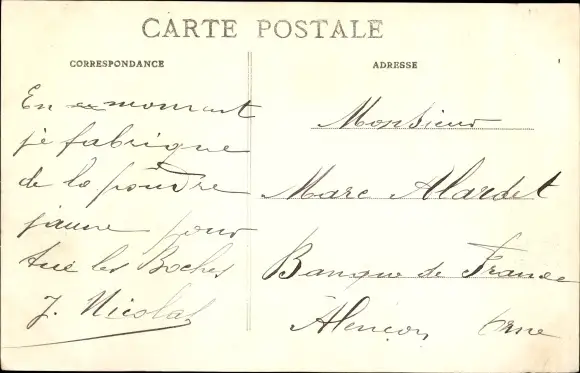 CARTE POSTALE
CORRESPONDANCE
En ce moment
je fabrique
de la poudre
jaune pour
tué les Boches
J. Nicolas
ADRESSE
Monsieur
Marc Alardet
Banque de France
Alençon Orne